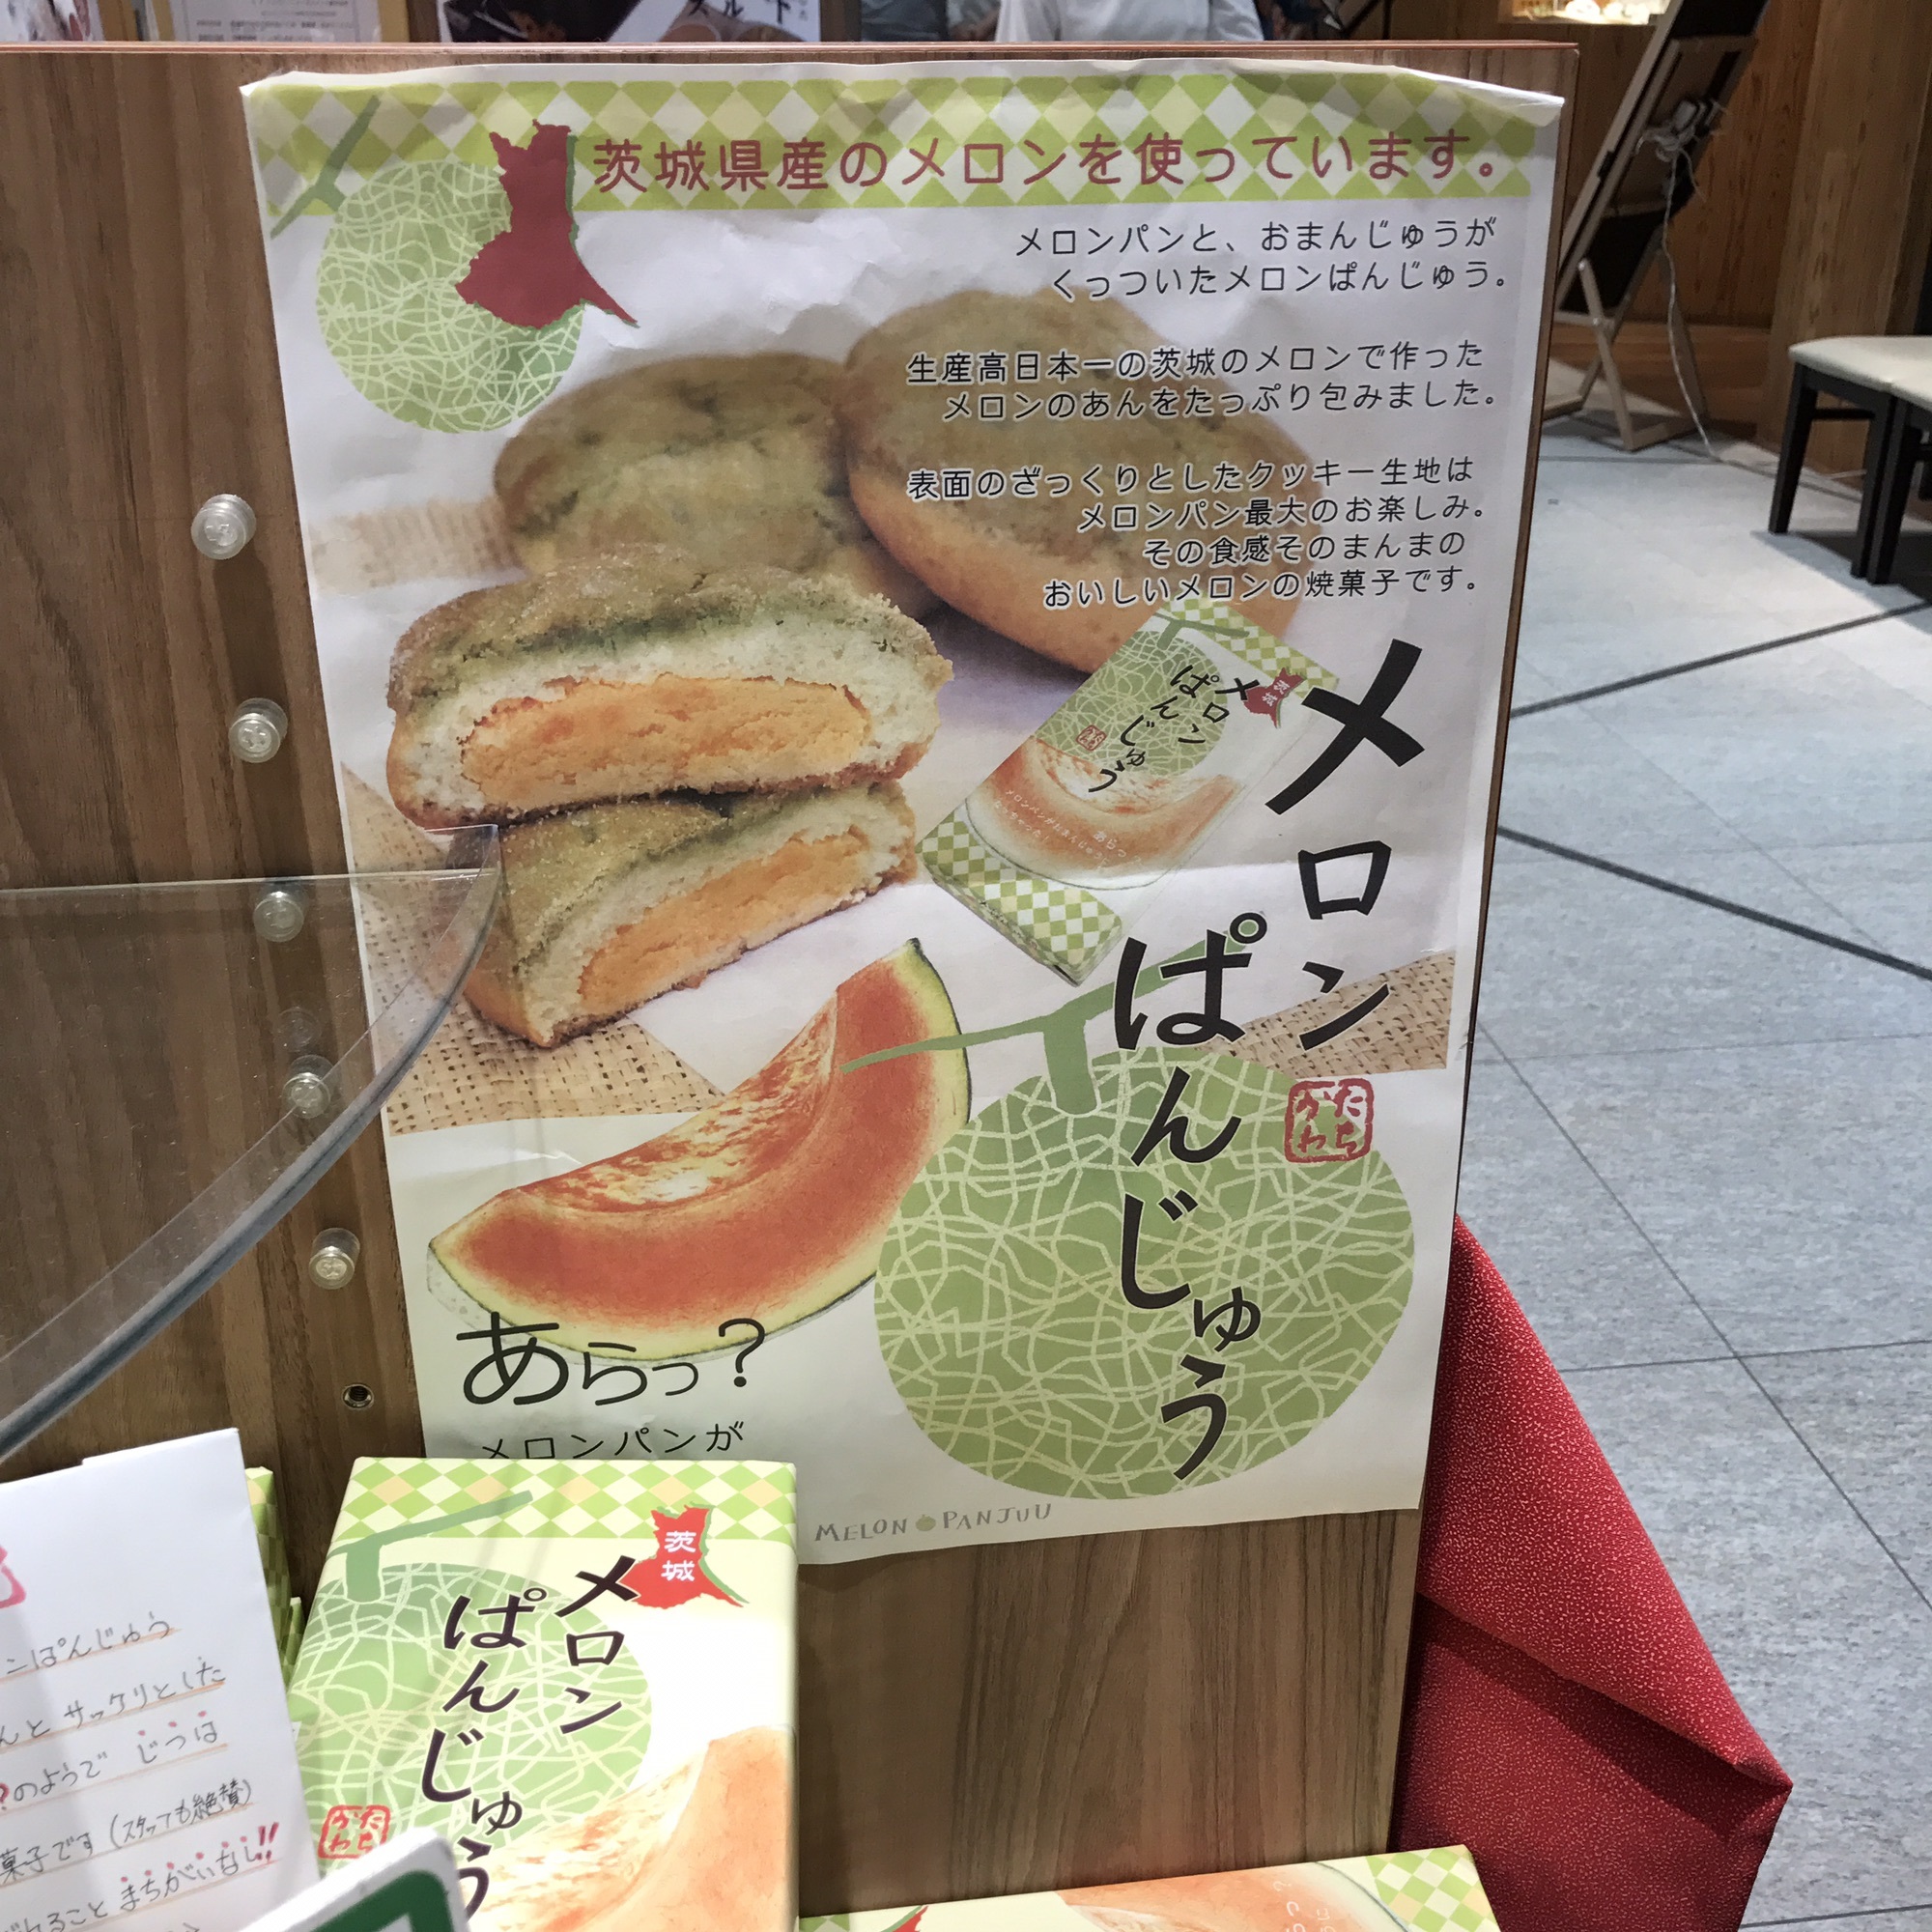 茨城県産のメロンを使っています。
メロンパンと、おまんじゅうが
くっついたメロンぱんじゅう。
生産高日本一の茨城のメロンで作った
メロンのあんをたっぷり包みました。
表面のざっくりとしたクッキー生地は
メロンパン最大のお楽しみ。
その食感そのまんまの
おいしいメロンの焼菓子です。
メロン
ぱんじゅう
たち
かわ
茨城
メロン
ぱんじゅう
あらっ?
あらっ?
メロンパンが
MELON PANJUU
茨城
メロン
ぱんじゅう
たち
かわ
ンぱんじゅう
んと サックリとした
?のようで じつは
菓子です(スタッフも絶賛)
ること まちがいなし!!